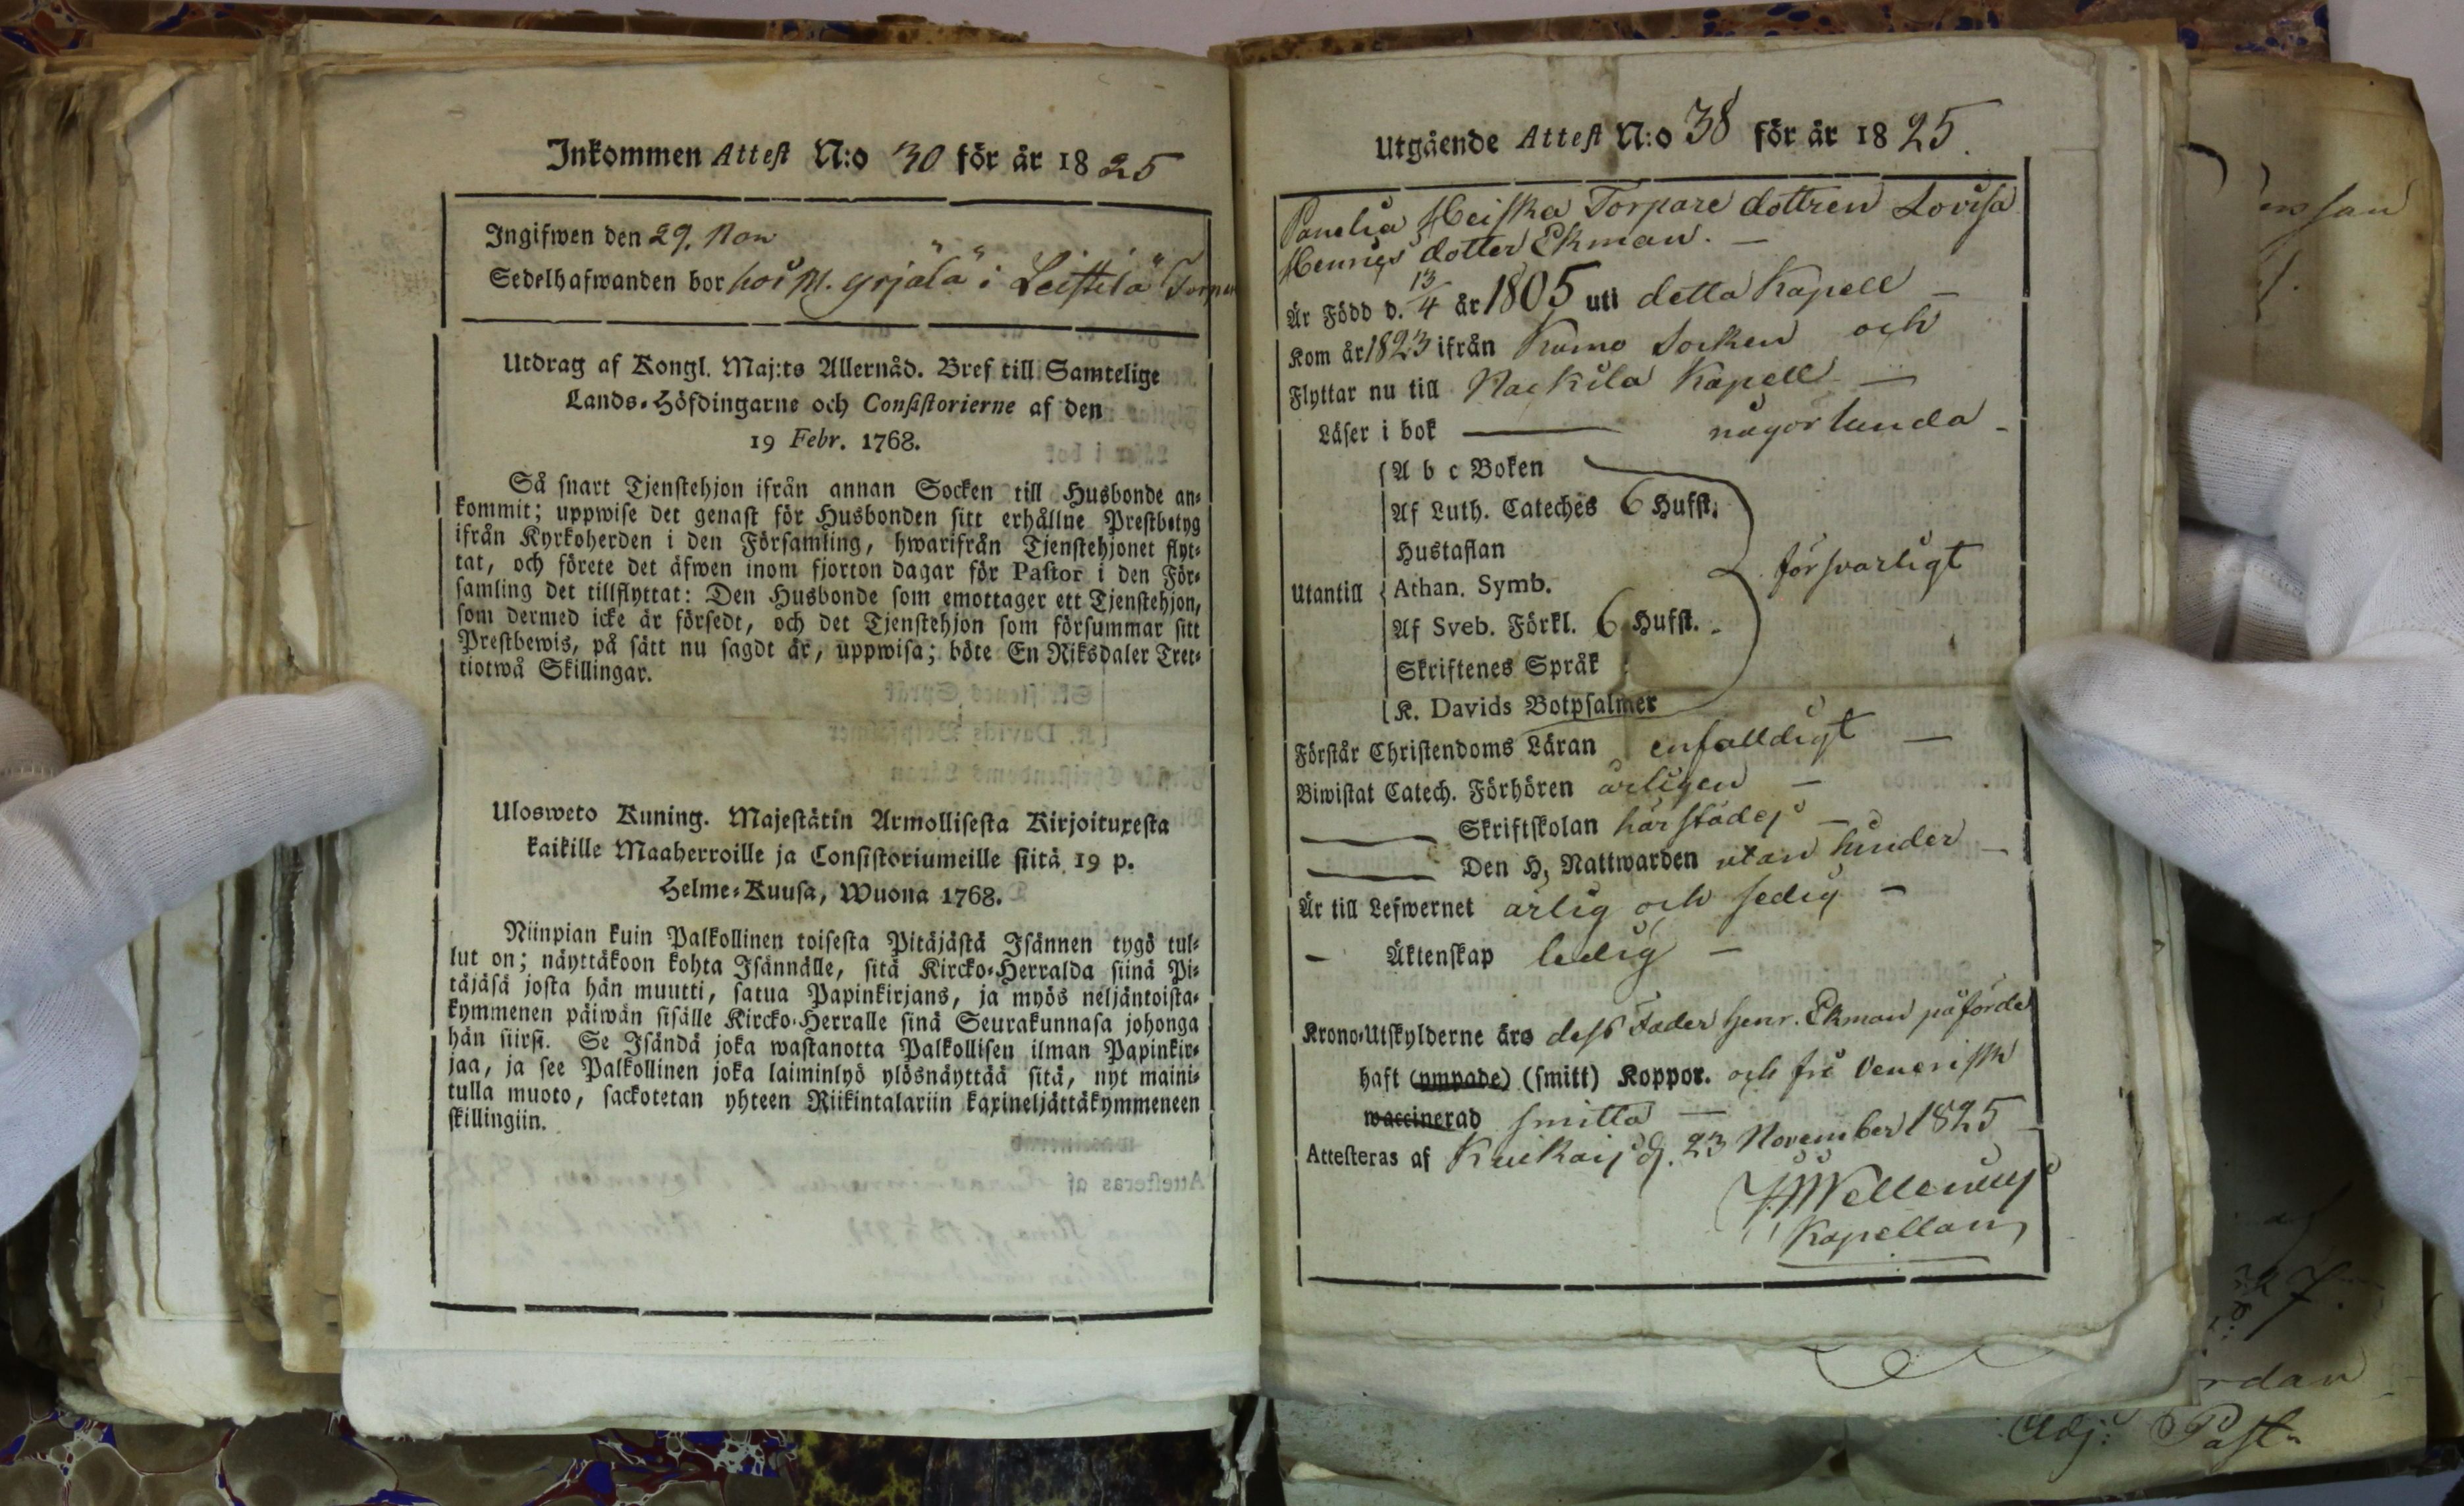 Inkommen Attest N:o 30 för år 1825
Ingifwen den 29. Nov
Sedelhafwanden bor hos M. Yrjälä i Leistilä Torpa
Utdrag af Kongl. Maj:ts Allernåd. Bref till Samtelige
Lands-Höfdingarne och Consistorierne af den
19 Febr. 1768.
Så snart Tjenstehjon ifrån annan Socken till Husbonde an-
kommit; uppwise det genast för Husbonden sitt erhållne Prestbetyg
ifrån Kyrkoherden i den Församling, hwarifrån Tjenstehjonet flyt-
tat, och förete det äfwen inom fjorton dagar för Pastor i den För-
samling det tillflyttat: Den Husbonde som emottager ett Tjenstehjon,
som dermed icke är försedt, och det Tjenstehjon som försummar sitt
Prestbewis, på sätt nu sagdt är, uppwisa; böte En Riksdaler Tret-
tiotwå Skillingar.
Ulosweto Kuning. Majestätin Armollisesta Kirjoituxesta
kaikille Maaherroille ja Consistoriumeille siitä 19 p.
Helme-Kuusa, Wuona 1768.
Niinpian kuin Palkollinen toisesta Pitäjästä Isännen tygö tul-
lut on; näyttäkoon kohta Isännälle, sitä Kircko-Herralda siinä Pi-
täjäsä josta hän muutti, satua Papinkirjans, ja myös neljäntoista-
kymmenen päiwän sisälle Kircko-Herralle sinä Seurakunnasa johonga
hän siirsi. Se Isändä joka wastanotta Palkollisen ilman Papinkir-
jaa, ja see Palkollinen joka laiminlyö ylösnäyttää sitä, nyt maini-
tulla muoto, sackotetan yhteen Riikintalariin kaxineljättäkymmeneen
skillingiin.
Utgående Attest N:o 38 för år 1825.
Panelia Heiska Torpare dottren Lovisa
Henrics dotter Ekman. —
Är Född d. 13/4 år 1805 uti detta Kapell —
Kom år 1823 ifrån Kumo Socken och
Flyttar nu till Nackila Kapell —
Läser i bok — någorlunda —
A b c Boken
Af Luth. Cateches 6 Hufst.
Hustaflan
Utantill Athan. Symb. försvarligt
Af Sveb. Förkl. 6 Hufst.
Skriftenes Språk
K. Davids Botpsalmer
Förstår Christendoms Läran enfalldigt —
Biwistat Catech. Förhören årligen —
— Skriftskolan härstädes —
— Den H. Nattwarden utan hinder —
Är till Lefwernet ärlig och sedig —
— Äktenskap ledig —
Krono-Utskylderne äro dess Fader Henr. Ekman påförde
haft (ympade) (smitt) Koppor. och fri Venerisk
waccinerad smitta —
Attesteras af Kiukais d. 23 November 1825
Kapellan
Adj: Past.